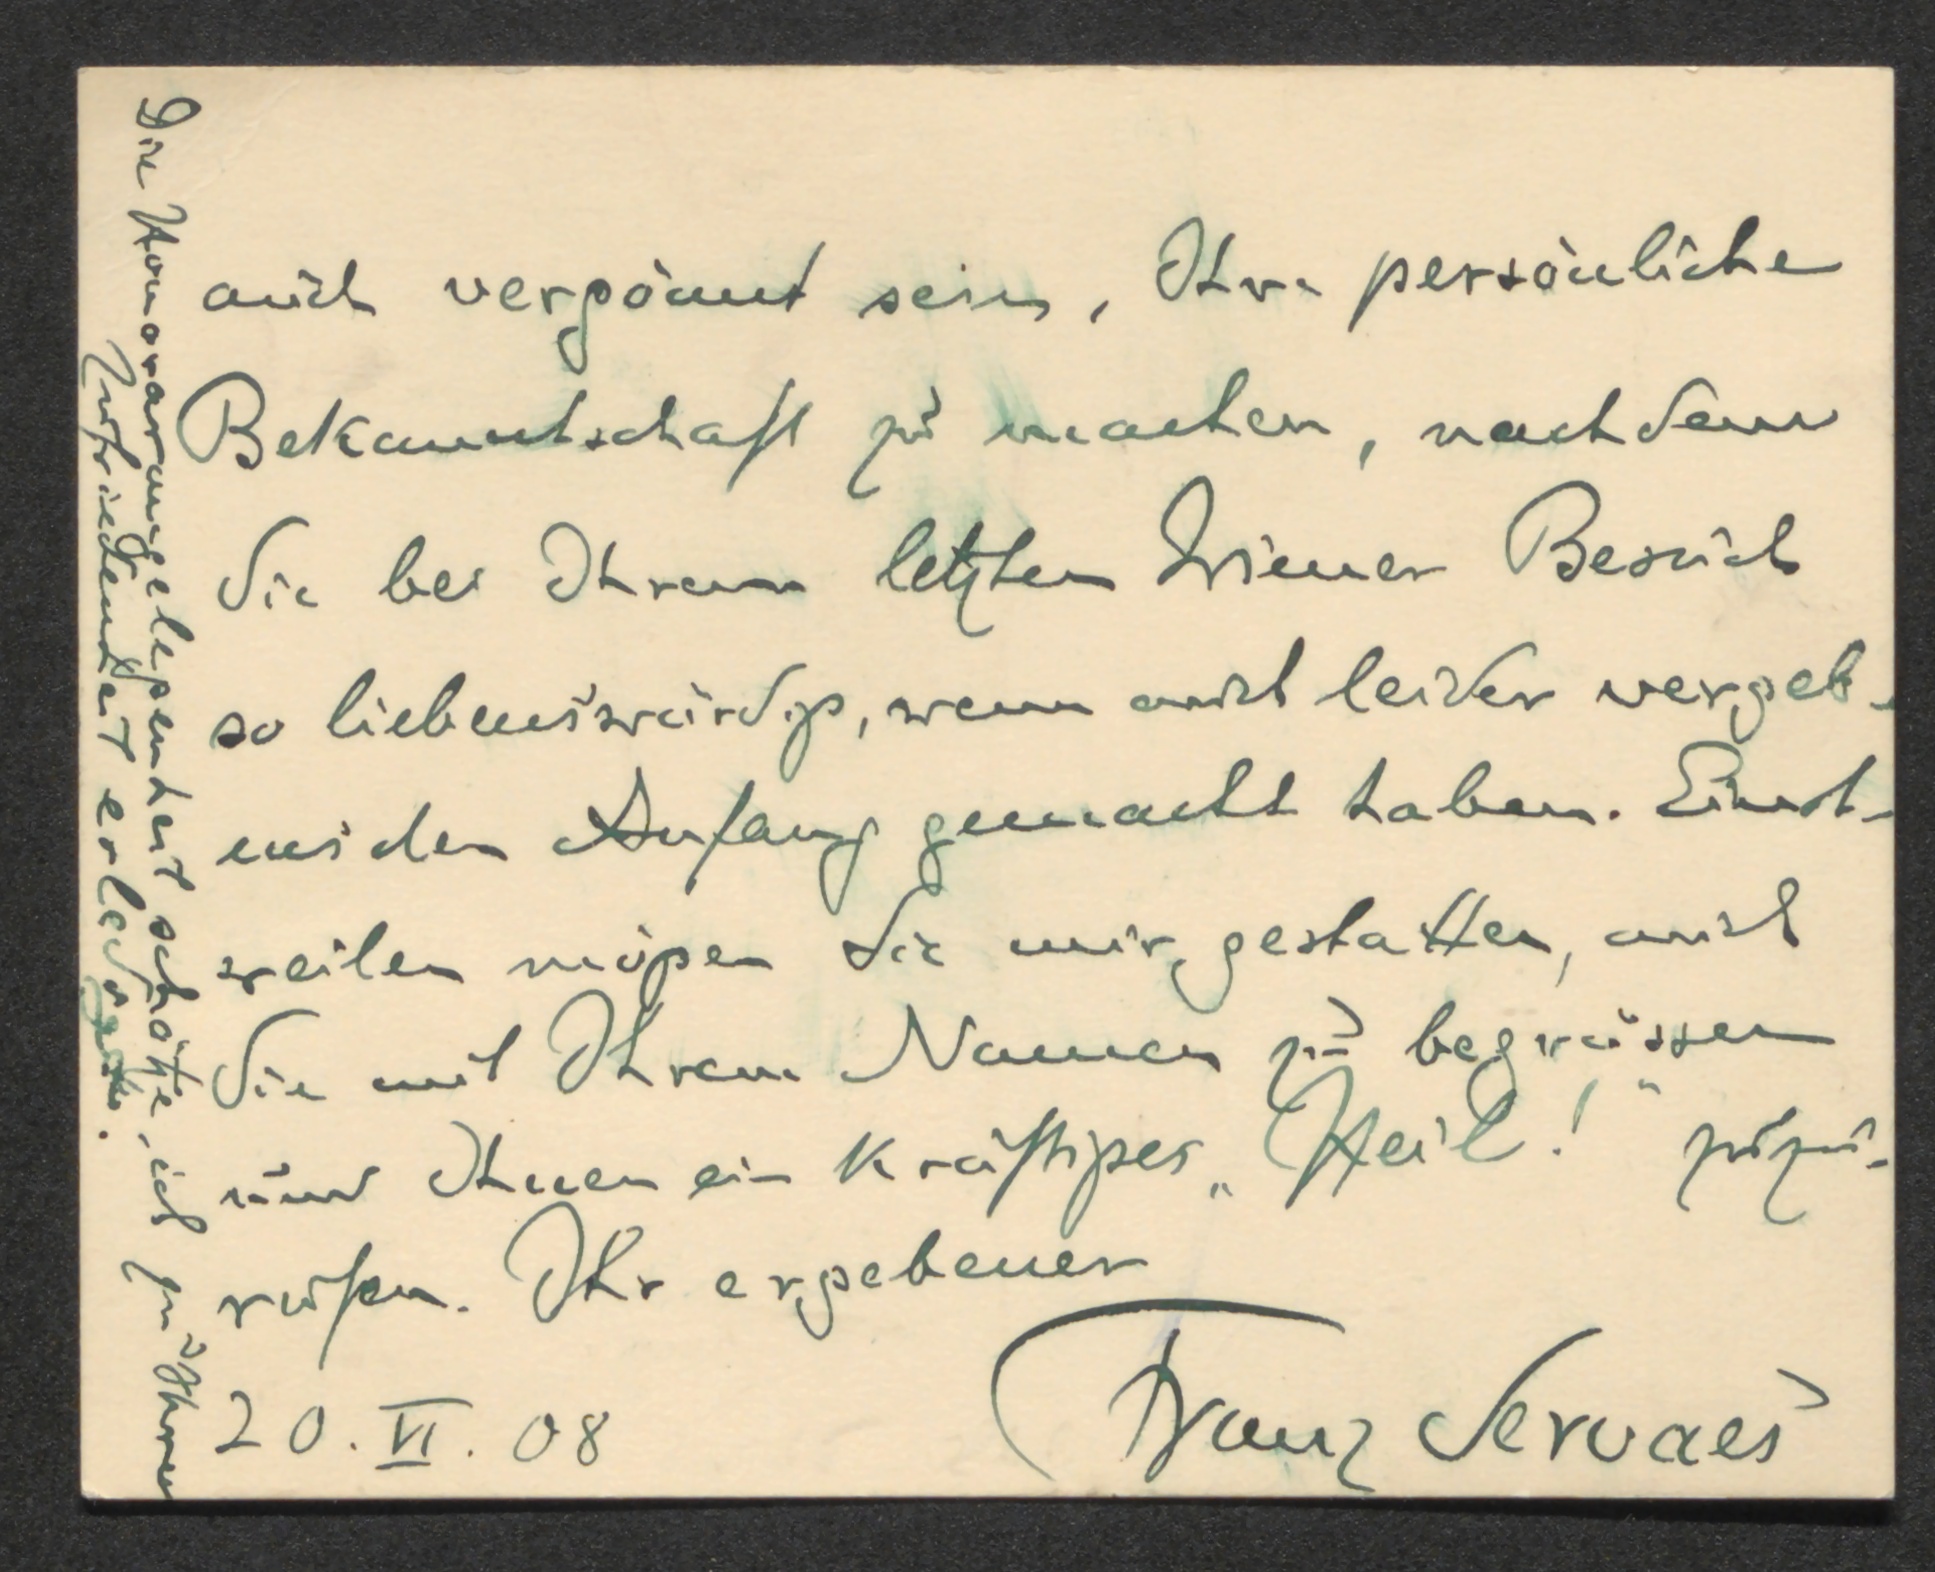 auch vergönnt sein, Ihre persönliche
Bekanntschaft zu machen, nachdem
Sie bei Ihrem letzten Wiener Besuch
so liebenswürdig, wenn auch leider vergeb-
den Anfang gemacht haben. Einst-
weilen mögen Sie mir gestatten, auch
Sie mit Ihrem Namen zu begrüssen
und Ihnen ein kräftiges „Heil!" zuzu-
rufen. Ihr ergebener
Franz Servaes
20. VI. 08
Die Honorarangelegenheit schätze ich zu Ihrer
Zufriedenheit erledigt.